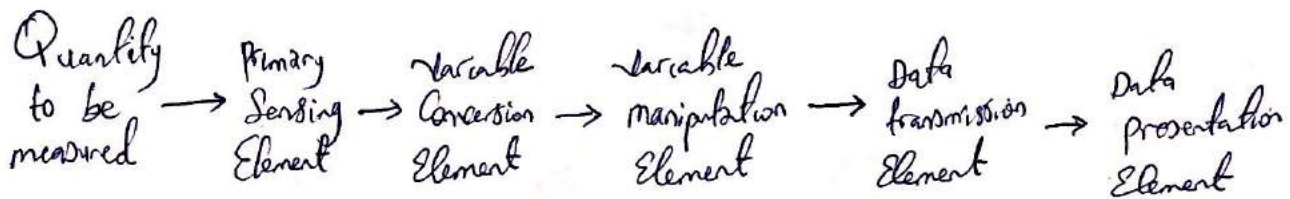 Quantity to be measured → Primary Sensing Element → Variable Conversion Element → Variable manipulation Element → Data transmission Element → Data presentation Element